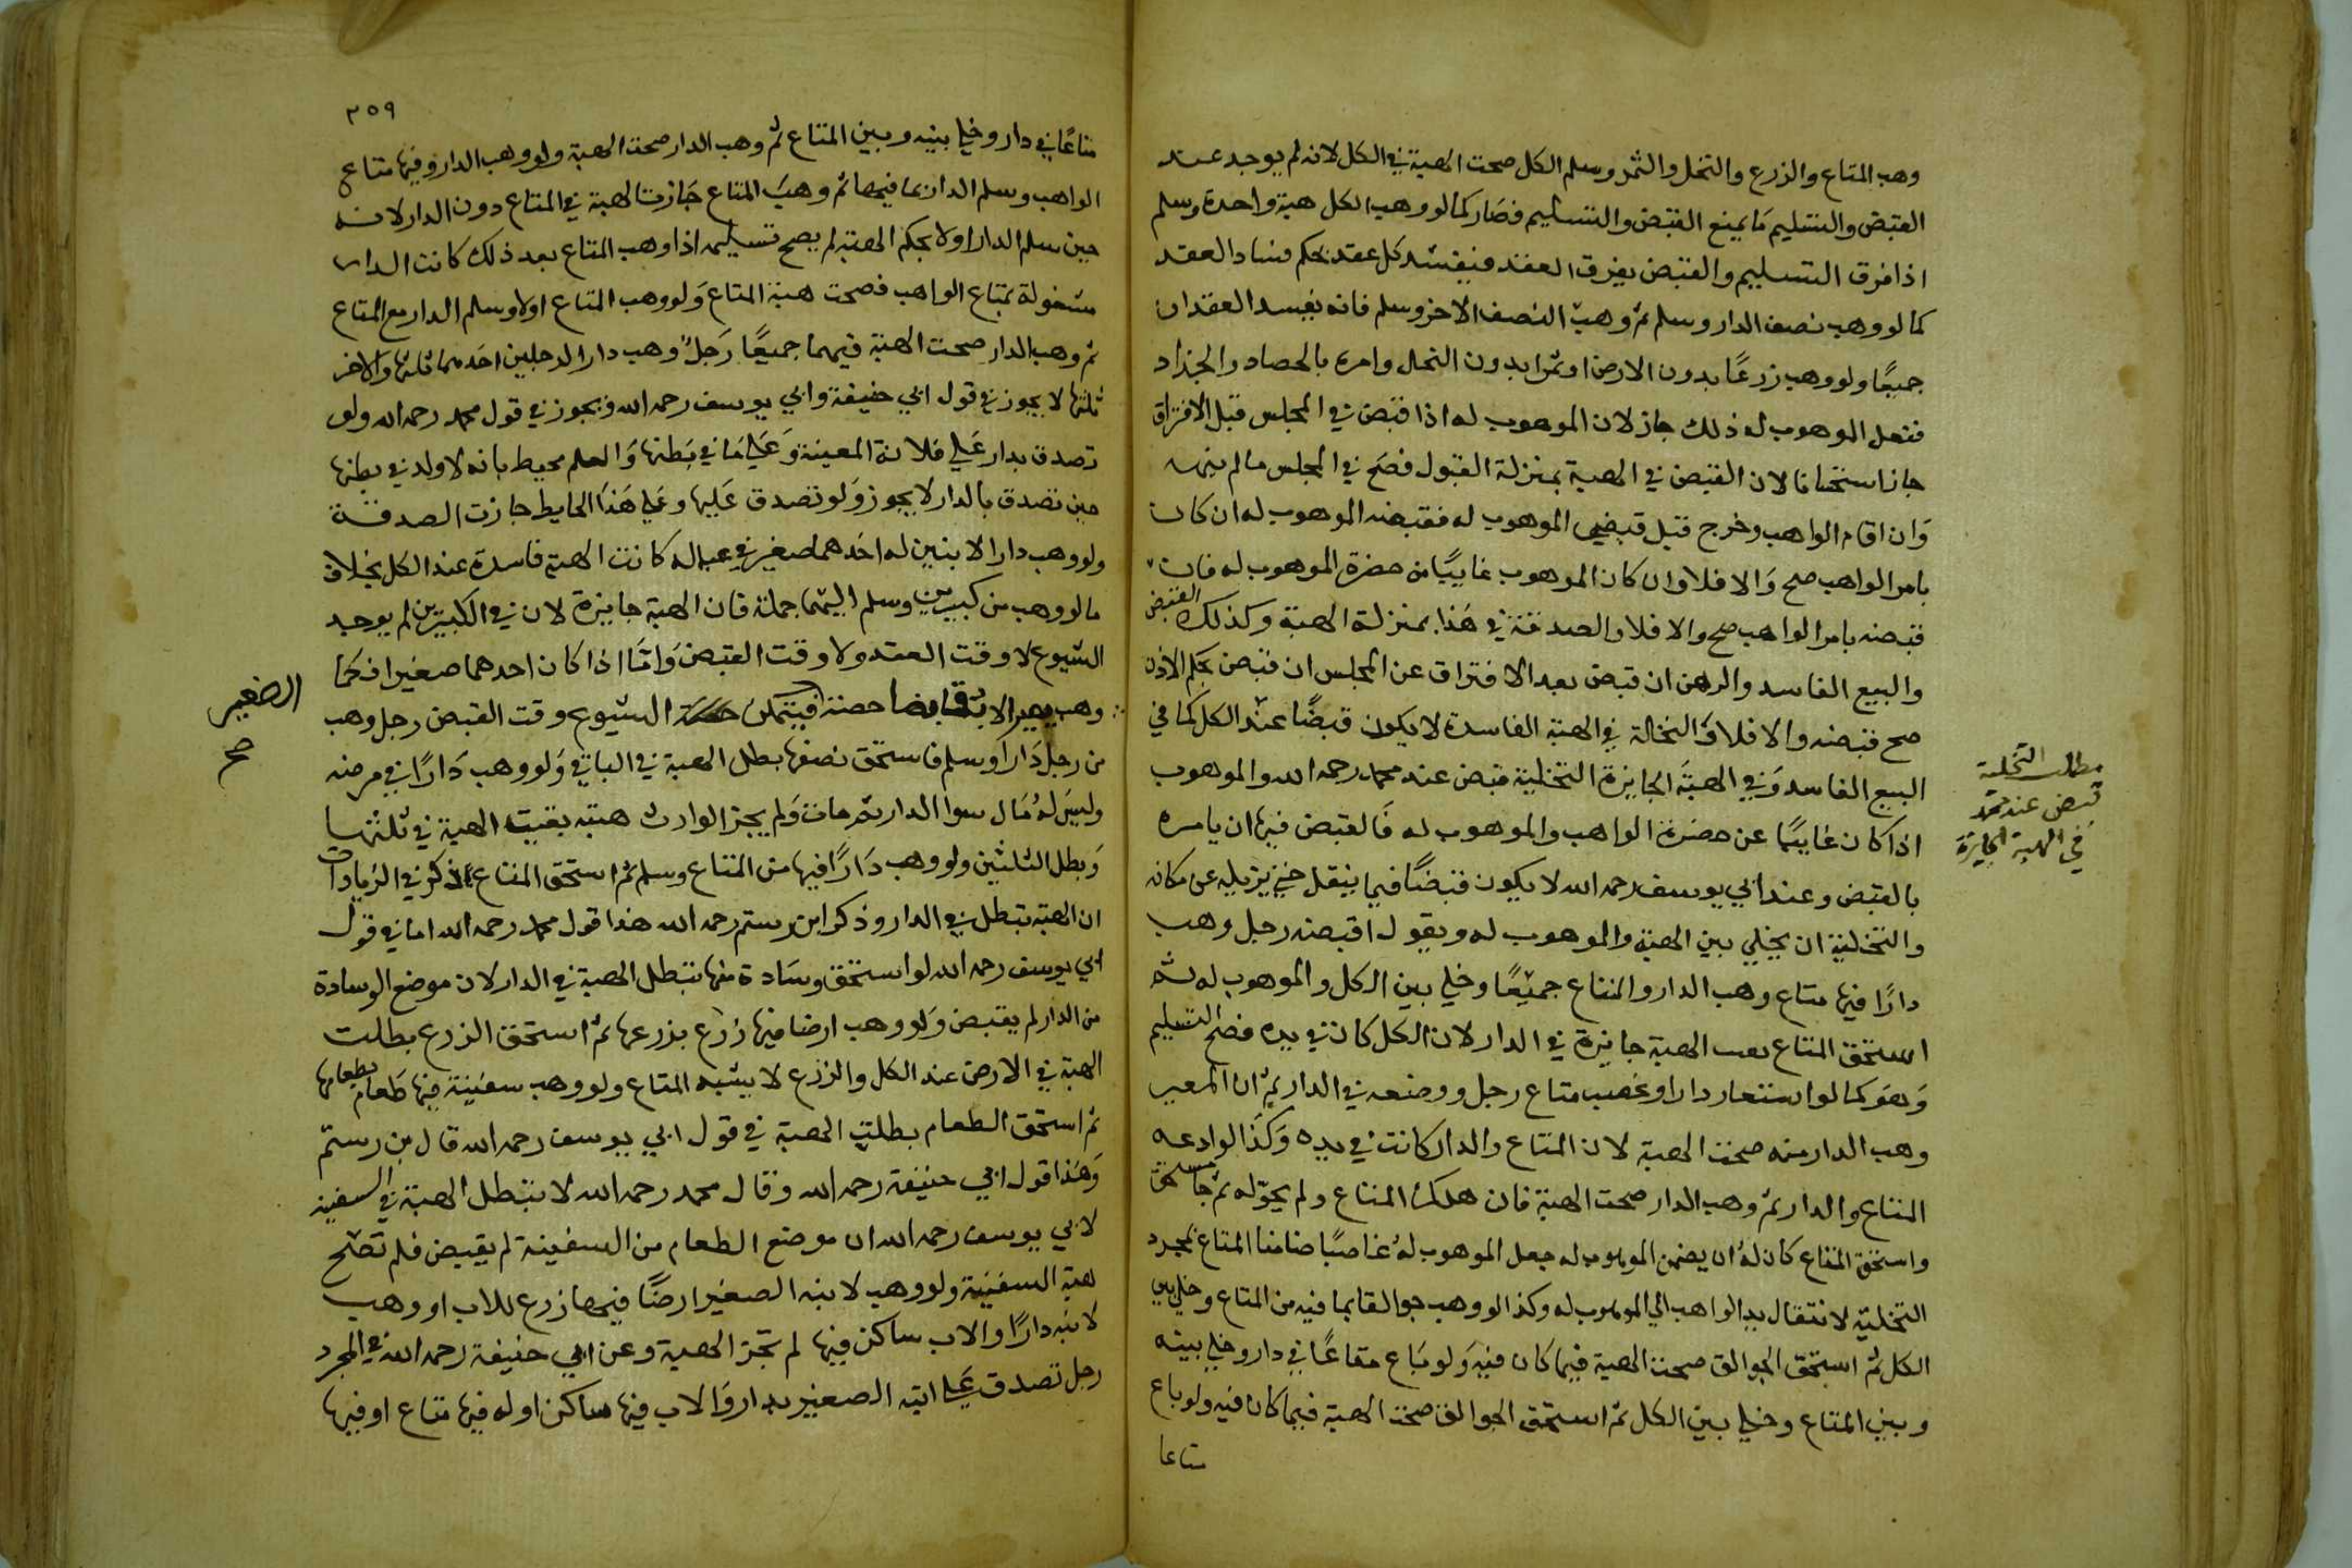 وهب المتاع والزرع والنخل والثمر وسلم الكل صحت الهبة في الكل لانه لم يوجد عند
القبض والتسليم ما يمنع القبض والتسليم فصار كما لو وهب الكل هبة واحدة وسلم
اذا فرق التسليم والقبض يفرق العقد فيفسد كل عقد بحكم فساد العقد
كما لو وهب نصف الدار وسلم ثم وهب النصف الاخر وسلم فانه يفسد العقدان
جميعًا ولو وهب زرعًا بدون الارض او ثمرا بدون النخل وامره بالحصاد والجذاد
ففعل الموهوب له ذلك جاز لان الموهوب له اذا قبض في المجلس قبل الافتراق
جاز استحسانا لان القبض في الهبة بمنزلة القبول فصح في المجلس ما لم ينهه
وان اقام الواهب وخرج قبل قبض الموهوب له فقبضه الموهوب له ان كان
بامر الواهب صح والا فلا وان كان الموهوب غايبًا من حضرة الموهوب له فان
قبضه بامر الواهب صح والا فلا والصدقة في هذا بمنزلة الهبة وكذلك القبض
والبيع الفاسد والرهن ان قبض بعد الافتراق عن المجلس ان قبض بحكم الاذن
صح قبضه والا فلا والتخالة في الهبة الفاسدة لا يكون قبضًا عند الكل كما في
البيع الفاسد وفي الهبة الجايزة التخلية قبض عند محمد رحمه الله والموهوب
اذا كان غايبًا عن حضرة الواهب والموهوب له فالقبض فيها ان يامره
بالقبض وعند ابي يوسف رحمه الله لا يكون قبضًا فيما ينقل حتى يزيله عن مكانه
والتخلية ان يخلي بين الهبة والموهوب له ويقول اقبضه رجل وهب
دارًا فيها متاع وهب الدار والمتاع جميعًا وخلي بين الكل والموهوب له ثم
استحق المتاع بعد الهبة جايزة في الدار لان الكل كان في يده فصح التسليم
وهو كما لو استعار دارا او غصب متاع رجل ووضعه في الدار ثم ان المعير
وهب الدار منه صحت الهبة لان المتاع والدار كانت في يده وكذا لو اودعه
المتاع والدار ثم وهب الدار صحت الهبة فان هلك المتاع ولم يحوّله ثم جا مستحق
واستحق المتاع كان له ان يضمن الموهوب له جعل الموهوب له غاصبًا ضامنا المتاع بمجرد
التخلية لانتقال يد الواهب الي الموهوب له وكذا لو وهب جوالقا بما فيه من المتاع وخلي بين
الكل ثم استحق الجوالق صحت الهبة فيما كان فيه ولو باع متاعًا في دار وخلي بينه
وبين المتاع وخلي بين الكل ثم استحق الجوالق صحت الهبة فيما كان فيه ولو باع
متاعا
مطلب التخلية
قبض عند محمد
في الهبة الجايزة
٣٥٩
متاعًا في دار وخلي بينه وبين المتاع ثم وهب الدار صحت الهبة ولو وهب الدار وفيها متاع
الواهب وسلم الدار بما فيها ثم وهب المتاع جازت الهبة في المتاع دون الدار لانه
حين سلم الدار اولا بحكم الهبة لم يصح تسليمه اذا وهب المتاع بعد ذلك كانت الدار
مشغولة بمتاع الواهب فصحت هبة المتاع ولو وهب المتاع اولا وسلم الدار مع المتاع
ثم وهب الدار صحت الهبة فيهما جميعًا رجل وهب دارا لرجلين احدهما ثلثها والاخر
ثلثها لا يجوز في قول ابي حنيفة وابي يوسف رحمه الله ويجوز في قول محمد رحمه الله ولو
تصدق بدار علي فلانة المعينة وعلي ما في بطنها والعلم محيط بانه لا ولد في بطنها
حين تصدق بالدار لا يجوز ولو تصدق عليها وعلي هذا الحايط جازت الصدقة
ولو وهب دارا لابنين له احدهما صغير في عياله كانت الهبة فاسدة عند الكل بخلاف
ما لو وهب من كبيرين وسلم اليهما جملة فان الهبة جايزة لان في الكبيرين لم يوجد
الشيوع لا وقت العقد ولا وقت القبض واما اذا كان احدهما صغيرا فكما
وهب يصير الاب قابضا حصة فيتمكن الشيوع وقت القبض رجل وهب
الصغير
صح
من رجل دارا وسلم فاستحق نصفها بطل الهبة في الباقي ولو وهب دارًا في مرضه
وليس له مال سوا الدار ثم مات ولم يجز الوارث هبته بقيت الهبة في ثلثها
وبطل الثلثين ولو وهب دارًا فيها من المتاع وسلم ثم استحق المتاع ذكر في الزيادات
ان الهبة تبطل في الدار وذكر ابن رستم رحمه الله هذا قول محمد رحمه الله اما في قول
ابي يوسف رحمه الله لو استحق وسادة منها تبطل الهبة في الدار لان موضع الوسادة
من الدار لم يقبض ولو وهب ارضا فيها زرع بزرعها ثم استحق الزرع بطلت
الهبة في الارض عند الكل والزرع لا يشبه المتاع ولو وهب سفينة فيها طعام بطعامها
ثم استحق الطعام بطلت الهبة في قول ابي يوسف رحمه الله قال بن رستم
وهذا قول ابي حنيفة رحمه الله وقال محمد رحمه الله لا تبطل الهبة في السفينة
لابي يوسف رحمه الله ان موضع الطعام من السفينة لم يقبض فلم تصح
هبة السفينة ولو وهب لابنه الصغير ارضًا فيها زرع للاب او وهب
لابنه دارًا والاب ساكن فيها لم تجز الهبة وعن ابي حنيفة رحمه الله في المجرد
رجل تصدق علي ابنه الصغير بدار والاب فيها ساكن او له فيها متاع او فيها